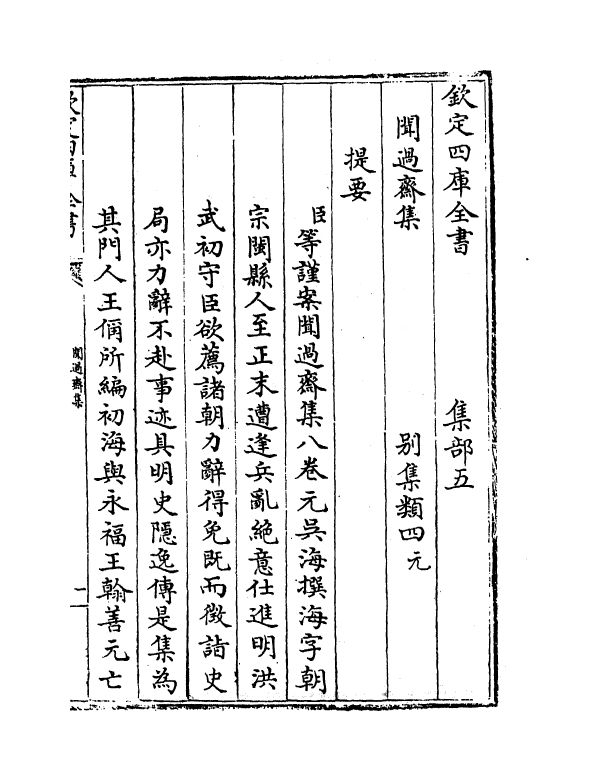 欽定四庫全書　集部五
聞過齋集　別集類四元
提要
臣等謹案聞過齋集八卷元吳海撰海字朝
宗閩縣人至正末遭逢兵亂絕意仕進明洪
武初守臣欲薦諸朝力辭得免既而徵詣史
局亦力辭不赴事迹具明史隱逸傳是集為
其門人王偁所編初海與永福王翰善元亡
欽定四庫全書
聞過齋集